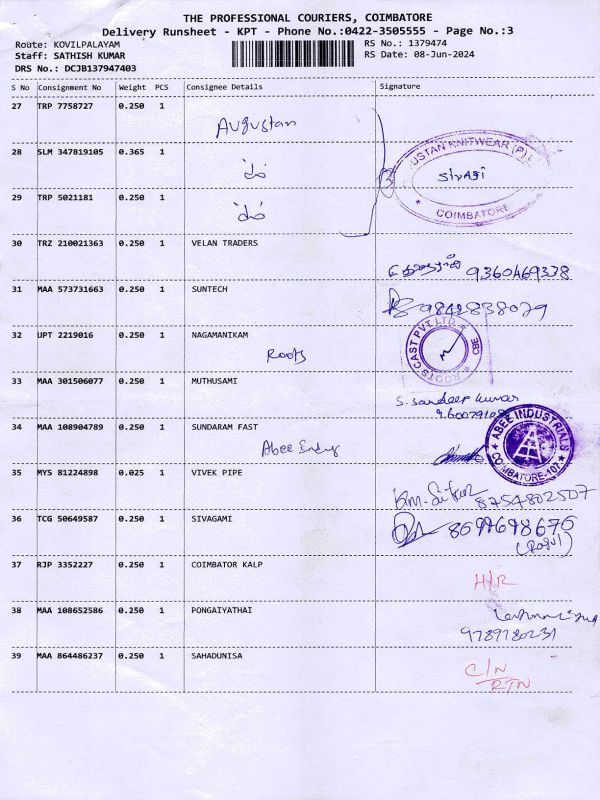 THE PROFESSIONAL COURIERS, COIMBATORE
Delivery Runsheet - KPT - Phone No.:0422-3505555 - Page No.:3
Route: KOVILPALAYAM
RS No.: 1379474
Staff: SATHISH KUMAR
RS Date: 08-Jun-2024
DRS No.: DCJB137947403
S No Consignment No Weight PCS Consignee Details Signature
27 TRP 7758727 0.250 1
Augustan
28 SLM 347819105 0.365 1
USTAN KNITWEAR (P)
3 SIVAJI
COIMBATORE
29 TRP 5021181 0.250 1
30 TRZ 210021363 0.250 1 VELAN TRADERS
9360469338
31 MAA 573731663 0.250 1 SUNTECH
9842838079
32 UPT 2219016 0.250 1 NAGAMANIKAM
Roots
ROOTS CAST PVT LTD CBE
33 MAA 301506077 0.250 1 MUTHUSAMI
S. Sandeep kumar
34 MAA 108904789 0.250 1 SUNDARAM FAST
Abee
ABEE INDUSTRIALS
COIMBATORE-107
35 MYS 81224898 0.025 1 VIVEK PIPE
8754802507
36 TCG 50649587 0.250 1 SIVAGAMI
(Ragul)
37 RJP 3352227 0.250 1 COIMBATOR KALP
H/R
38 MAA 108652586 0.250 1 PONGAIYATHAI
9789780231
39 MAA 864486237 0.250 1 SAHADUNISA
C/N
RTN